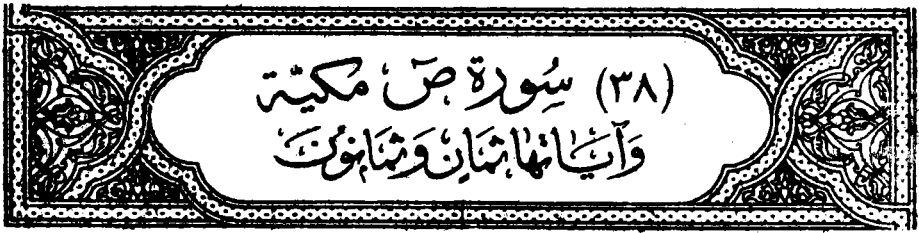 (٣٨) سُورة صٓ مكيّة
وَآيَاتها ثمَانِ وَثمَانونَ